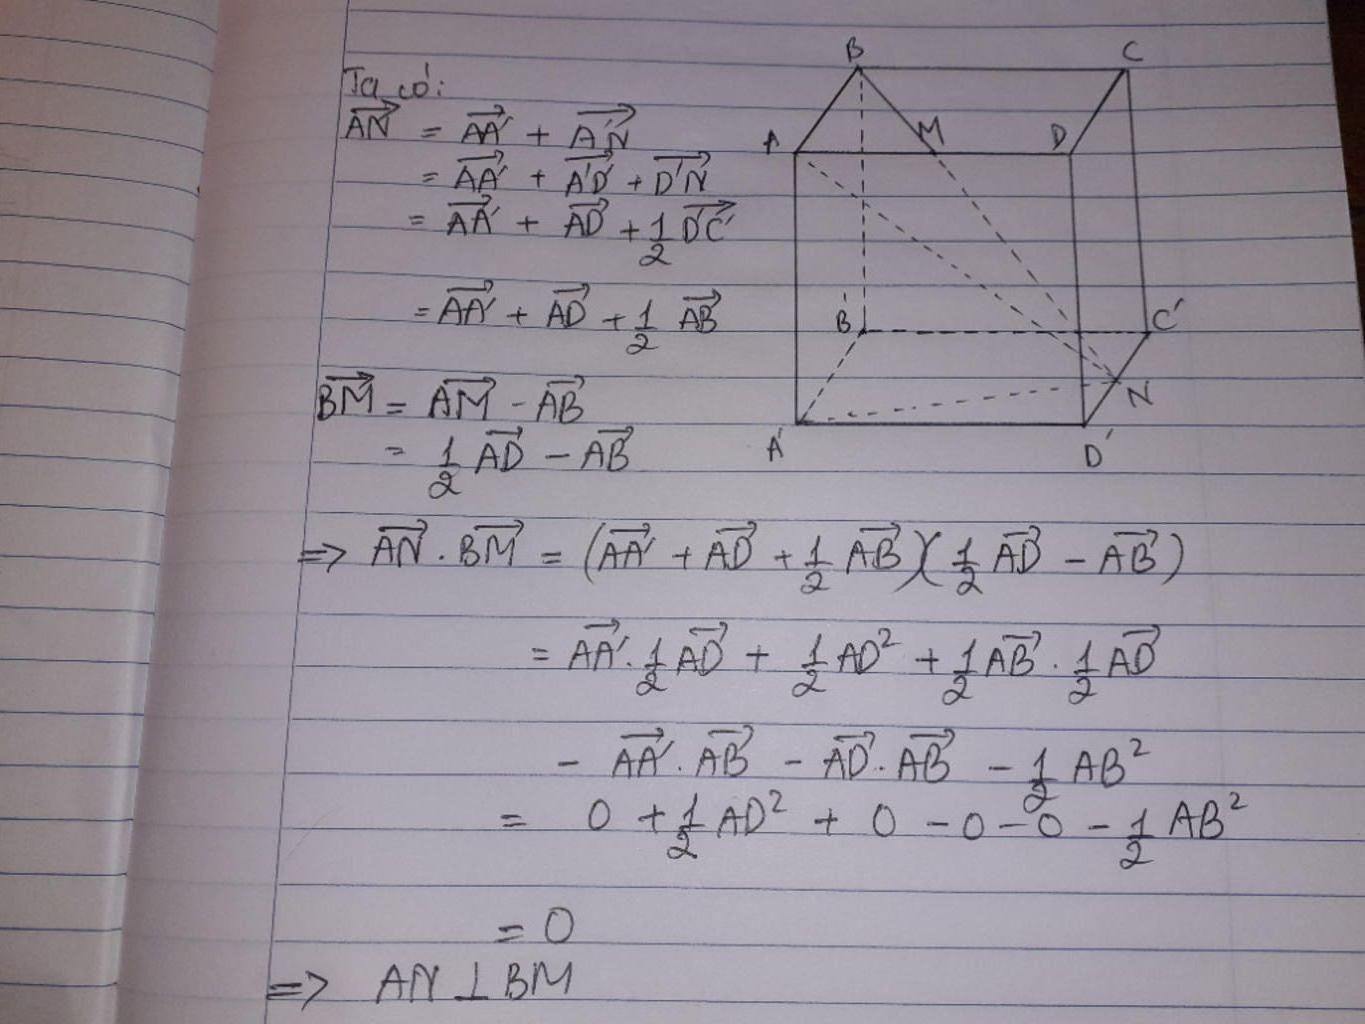 Ta có:
$\overrightarrow{AN} = \overrightarrow{AA'} + \overrightarrow{A'N}$
$= \overrightarrow{AA'} + \overrightarrow{A'D'} + \overrightarrow{D'N}$
$= \overrightarrow{AA'} + \overrightarrow{AD} + \frac{1}{2} \overrightarrow{D'C'}$
$= \overrightarrow{AA'} + \overrightarrow{AD} + \frac{1}{2} \overrightarrow{AB}$
$\overrightarrow{BM} = \overrightarrow{AM} - \overrightarrow{AB}$
$= \frac{1}{2} \overrightarrow{AD} - \overrightarrow{AB}$
$\Rightarrow \overrightarrow{AN} . \overrightarrow{BM} = (\overrightarrow{AA'} + \overrightarrow{AD} + \frac{1}{2} \overrightarrow{AB})(\frac{1}{2} \overrightarrow{AD} - \overrightarrow{AB})$
$= \overrightarrow{AA'} . \frac{1}{2} \overrightarrow{AD} + \frac{1}{2} AD^2 + \frac{1}{2} \overrightarrow{AB} . \frac{1}{2} \overrightarrow{AD}$
$- \overrightarrow{AA'} . \overrightarrow{AB} - \overrightarrow{AD} . \overrightarrow{AB} - \frac{1}{2} AB^2$
$= 0 + \frac{1}{2} AD^2 + 0 - 0 - 0 - \frac{1}{2} AB^2$
$= 0$
$\Rightarrow AN \perp BM$
B
C
A
M
D
B'
C'
N
A'
D'